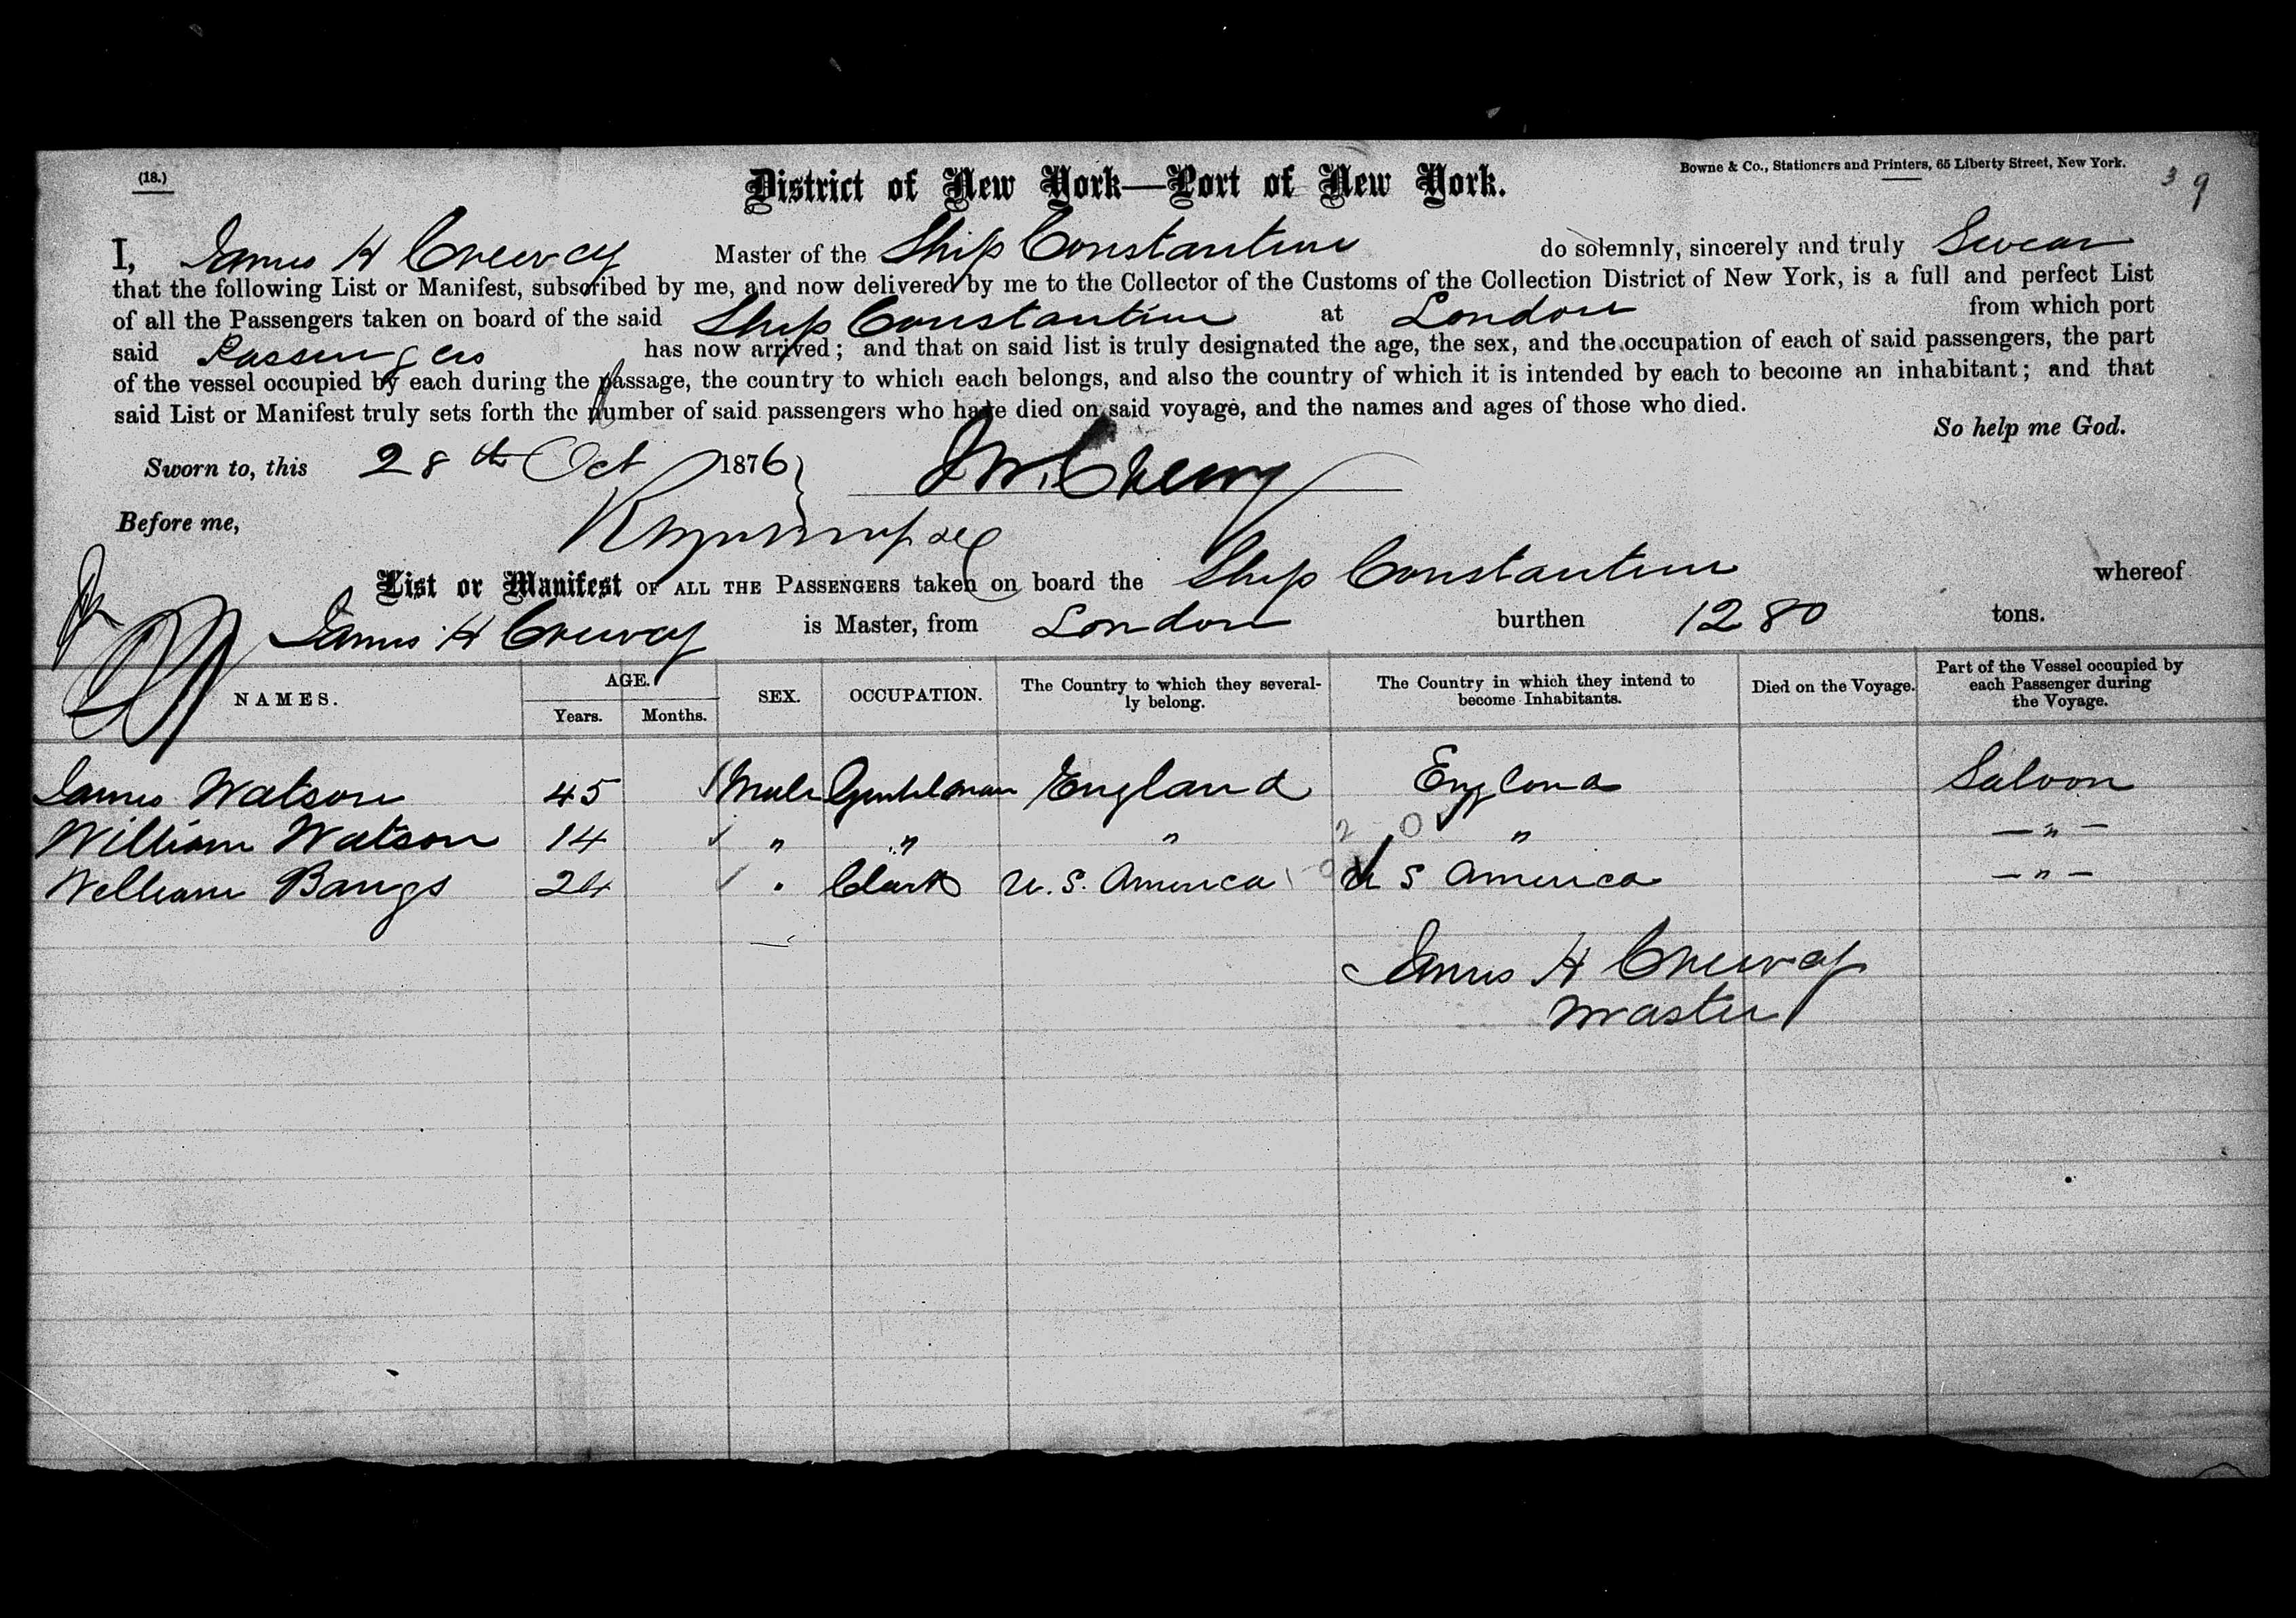 (18.)
District of New York—Port of New York.
Bowne & Co., Stationers and Printers, 65 Liberty Street, New York.
39
I, James H Creevey Master of the Ship Constantine do solemnly, sincerely and truly Swear
that the following List or Manifest, subscribed by me, and now delivered by me to the Collector of the Customs of the Collection District of New York, is a full and perfect List
of all the Passengers taken on board of the said Ship Constantine at London from which port
said Passengers has now arrived; and that on said list is truly designated the age, the sex, and the occupation of each of said passengers, the part
of the vessel occupied by each during the passage, the country to which each belongs, and also the country of which it is intended by each to become an inhabitant; and that
said List or Manifest truly sets forth the number of said passengers who have died on said voyage, and the names and ages of those who died.
So help me God.
Sworn to, this 28th Oct 1876
Before me,
List or Manifest OF ALL THE PASSENGERS taken on board the Ship Constantine whereof
James H Creevey is Master, from London burthen 1280 tons.
NAMES. AGE. Years. Months. SEX. OCCUPATION. The Country to which they severally belong. The Country in which they intend to become Inhabitants. Died on the Voyage. Part of the Vessel occupied by each Passenger during the Voyage.
James Watson 45 Male Gentleman England England Saloon
William Watson 14 " " " 2 0 " — " —
William Bangs 24 " Clerk U. S. America U S America — " —
James H Creevey
Master